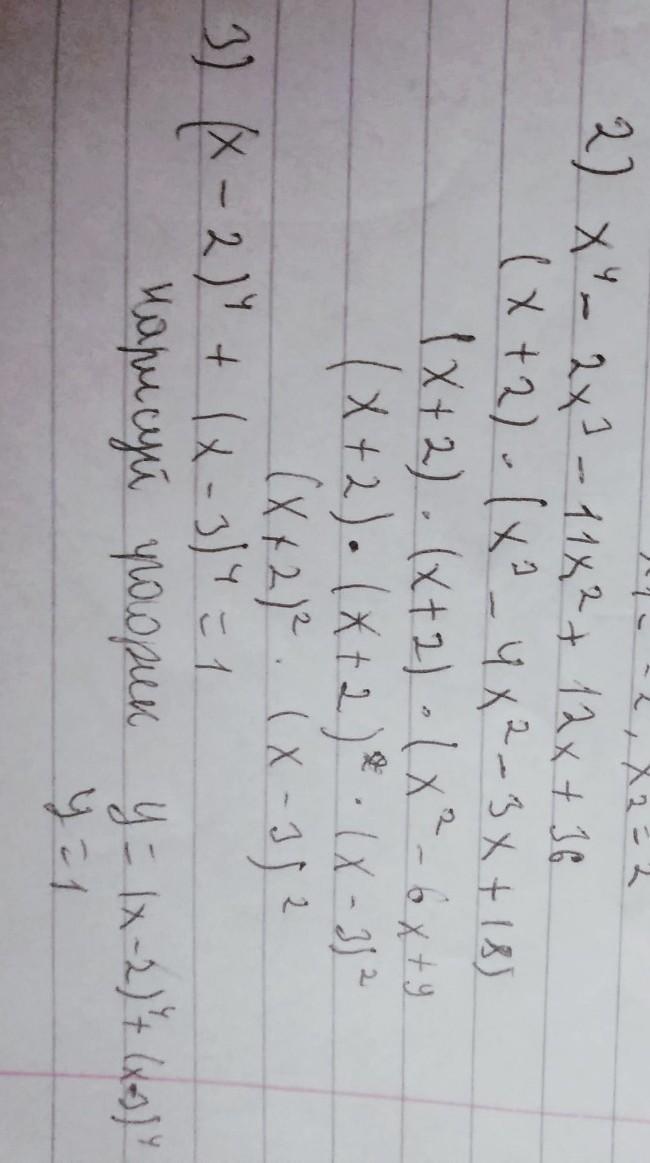 x₁ = -2, x₂ = 2
2) x⁴ - 2x³ - 11x² + 12x + 36
(x + 2) · (x³ - 4x² - 3x + 18)
(x + 2) · (x + 2) · (x² - 6x + 9
(x + 2) · (x + 2) · (x - 3)²
(x + 2)² · (x - 3)²
3) (x - 2)⁴ + (x - 3)⁴ = 1
Нарисуй график y = (x - 2)⁴ + (x - 3)⁴
y = 1